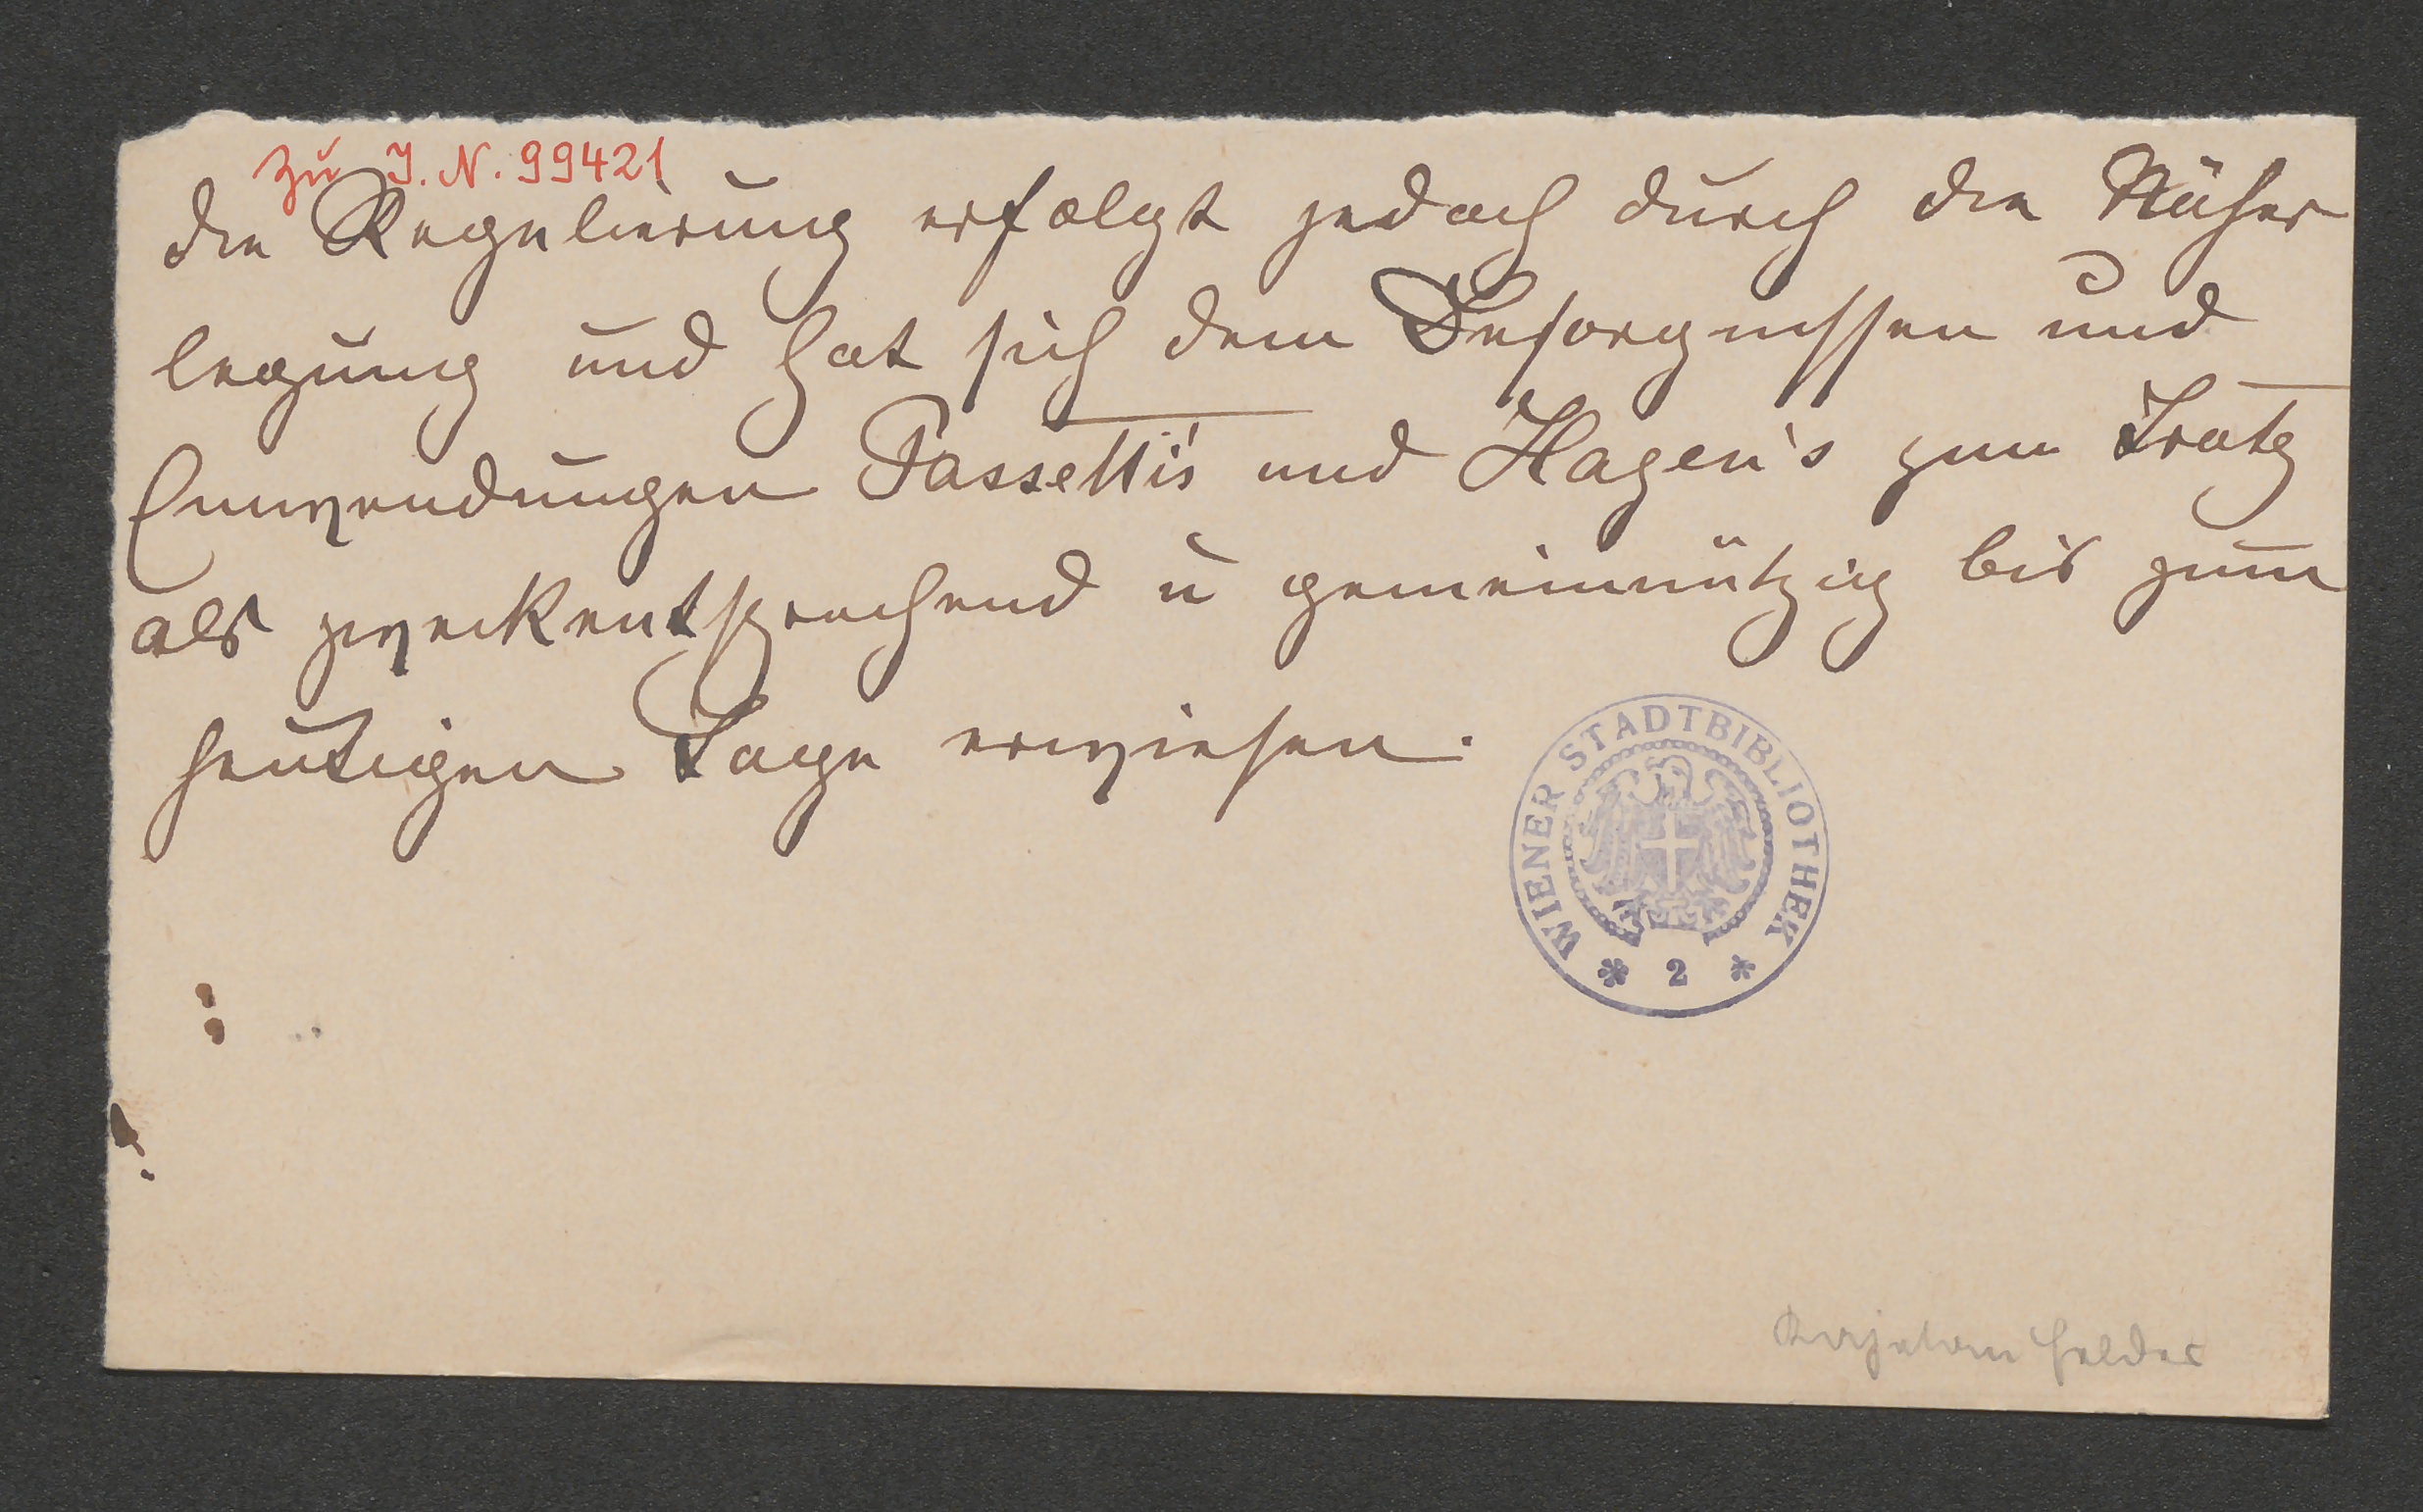 zu J. N. 99421
die Regulierung erfolgt jedoch durch die Näher
legung und hat sich dem Besorgnissen und
Einwendungen Passettis und Hagen's zum Trotz
als zweckentsprechend u gemeinnützig bis zum
heutigen Tage erwiesen.
WIENER STADTBIBLIOTHEK
* 2 *
Kajetan Felder